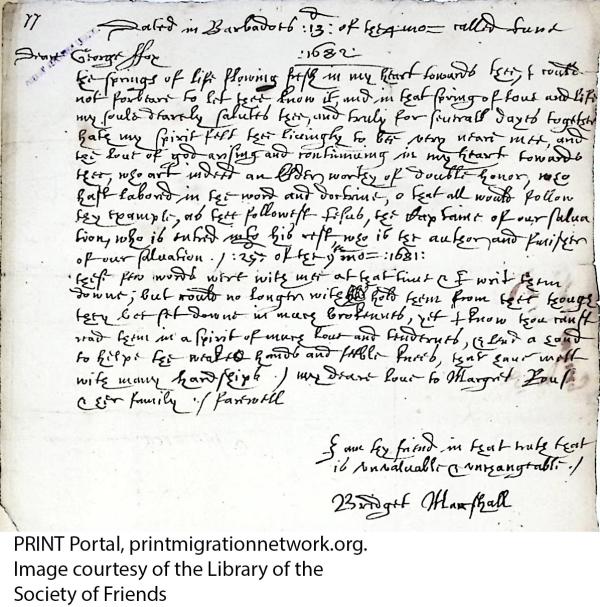 77
Dated in Barbados :13:d of the 4 mo= called June
Deare George ffox :1682:
the springs of life flowing fresh in my heart towards thee, I could
not forbeare to let thee know it, and in that spring of love and life
my soule dearely salutes thee, and truly for severall dayes together
hath my spirit felt thee livingly to bee very neare mee, and
the love of god arising and continuing in my heart towards
thee, who art indeed an Elder worthy of double honor, who
hast labored in the word and doctrine, o that all would follow
thy example, as thee followest Jesus, the Captaine of our salva
tion, who is entred into his rest, who is the author and finisher
of our salvation :/: 25: of the 9th mo=: 1681:
these few words were with mee at that time & I writ them
downe; but could no longer with hold them from thee though
they bee set downe in much brokennes, yet I know thou canst
read them in a spirit of much love and tendernes, & lend a hand
to helpe the weake hands and feeble knees, that have mett
with many hardships :/ my deare love to Margret Rous
& her family :/ farewell
I am thy friend in that truth that
is unvaluable & unchangeable :/
Bridget Marshall
PRINT Portal, printmigrationnetwork.org.
Image courtesy of the Library of the
Society of Friends